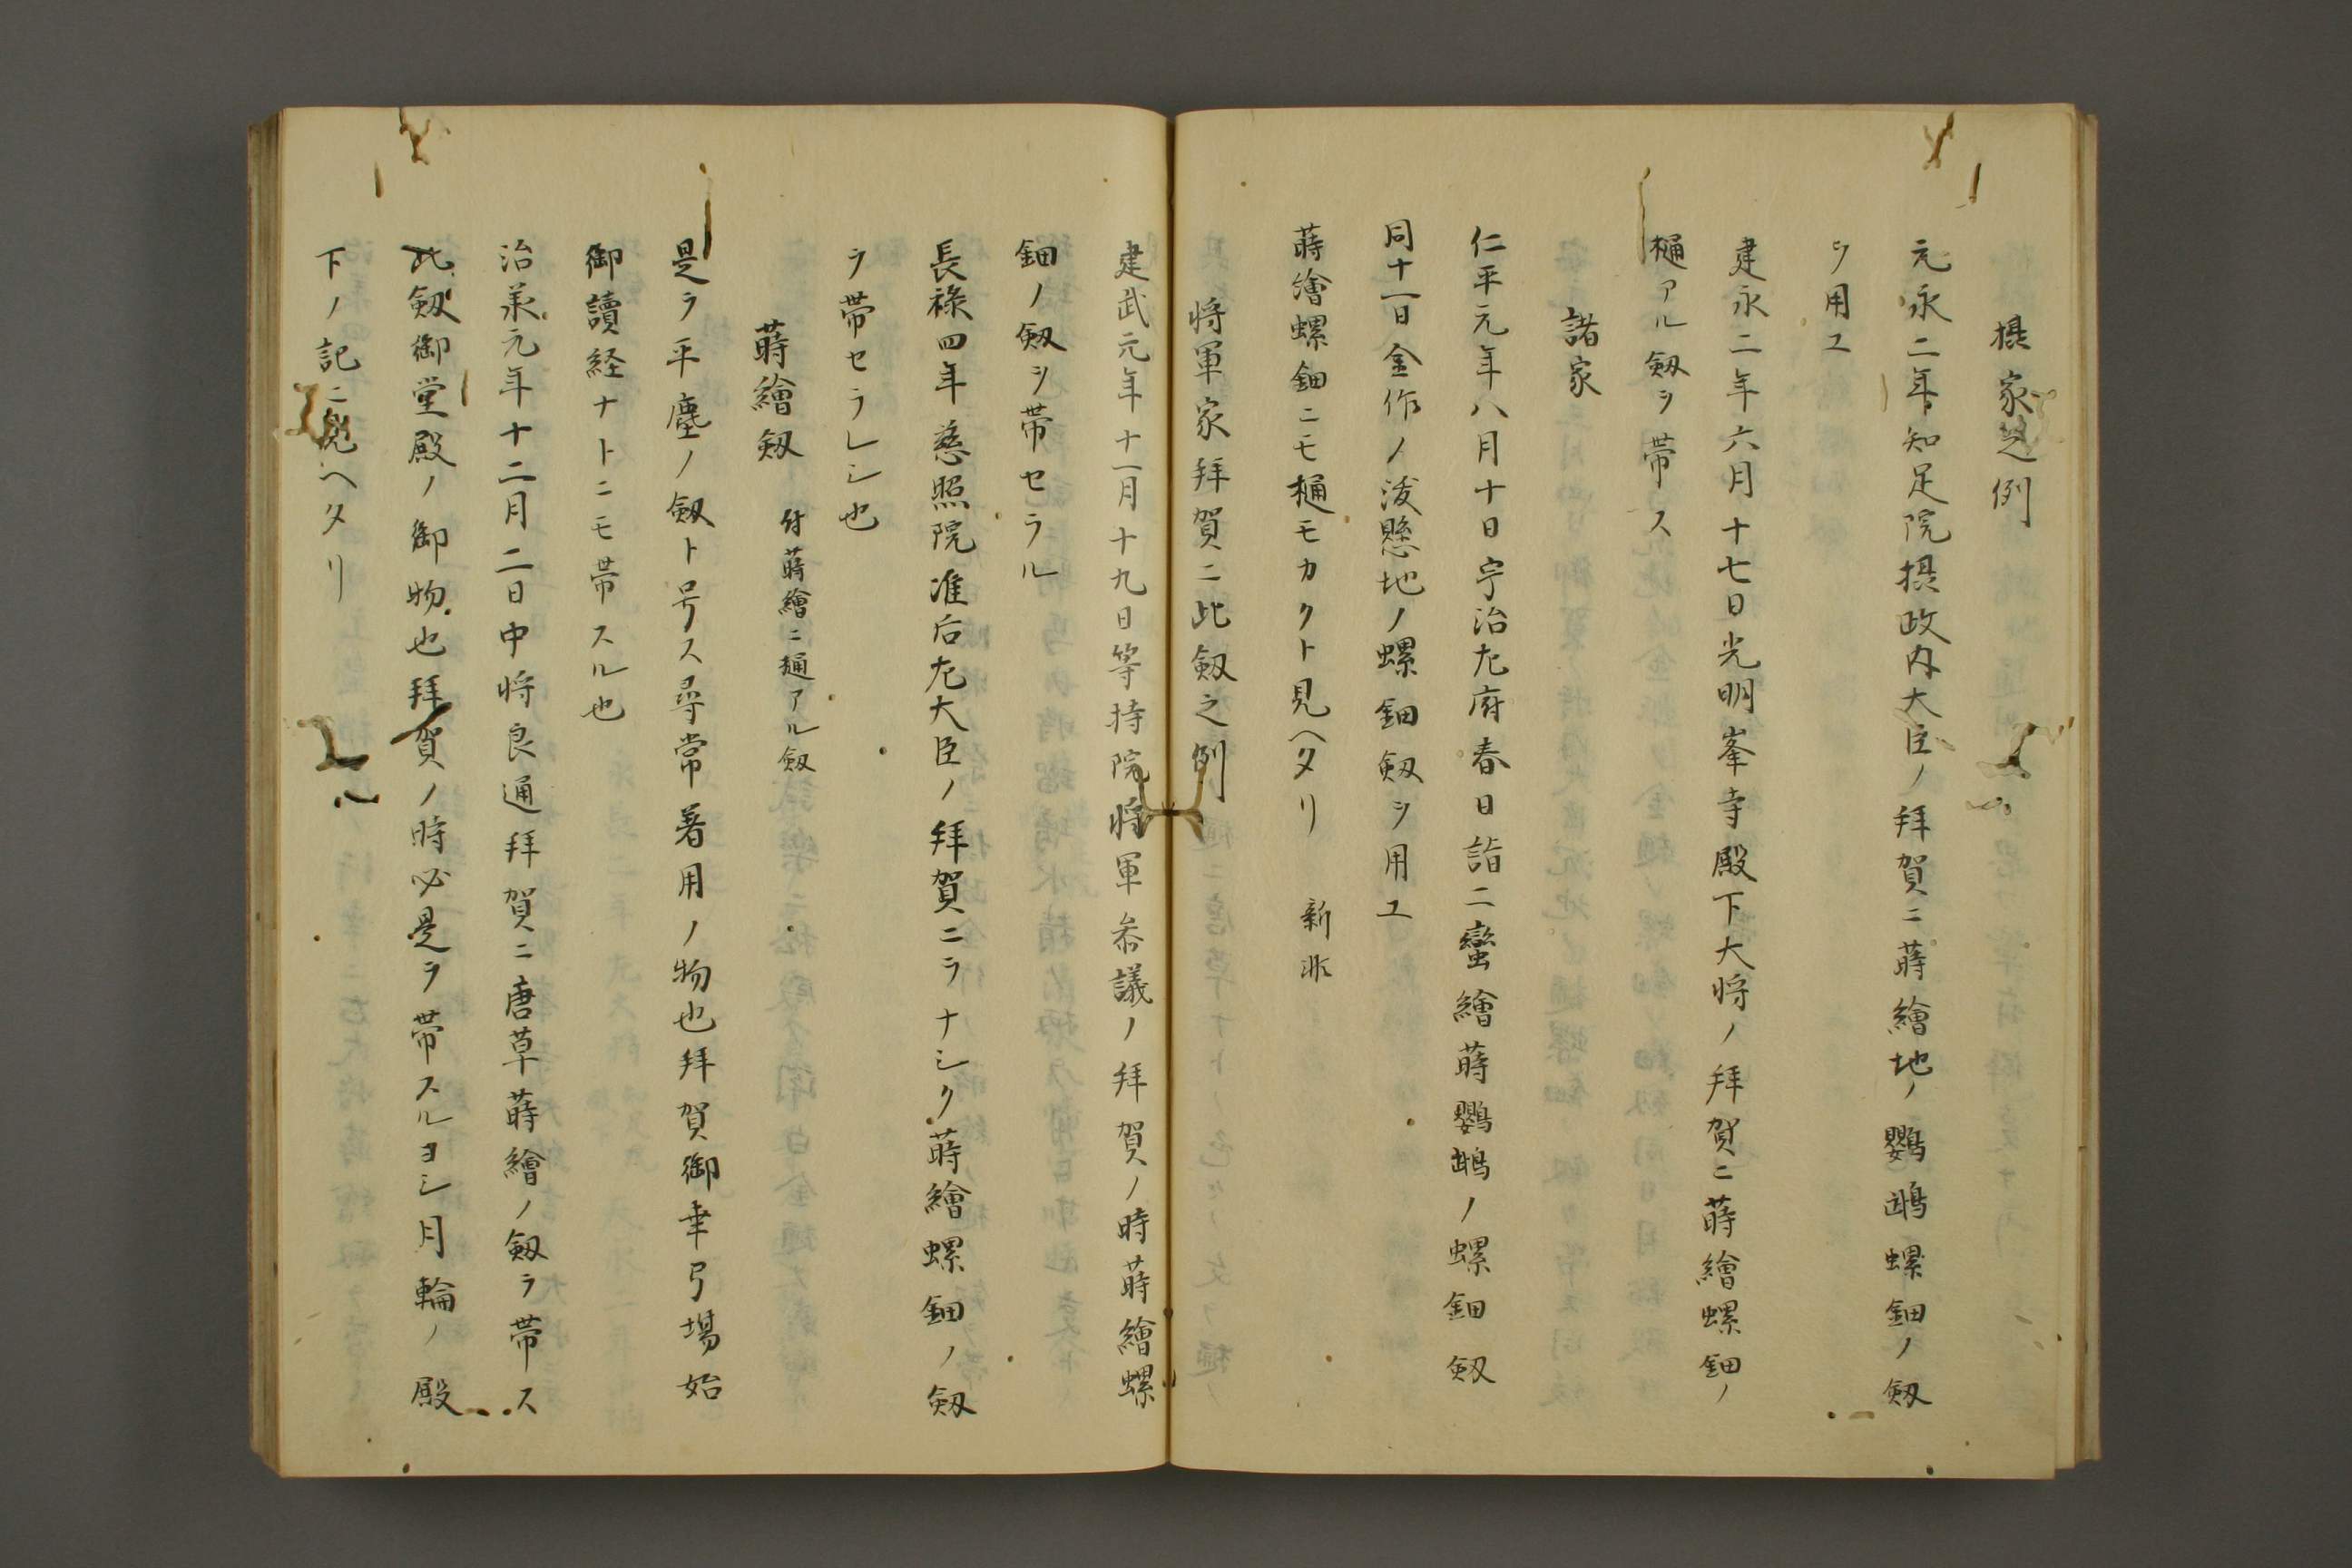 摂家之例
元永二年知足院摂政内大臣ノ拜賀ニ蒔繪地ノ鸚鵡螺鈿ノ劔
ヲ用ユ
建永二年六月十七日光明峯寺殿下大将ノ拜賀ニ蒔繪螺鈿ノ
樋アル劔ヲ帯ス
諸家
仁平元年八月十日宇治左府春日詣ニ蠻繪蒔鸚鵡ノ螺鈿劔
同十一日金作ノ浅懸地ノ螺鈿劔ヲ用ユ
蒔繪螺鈿ニモ樋モカクト見ヘタリ 新
将軍家拜賀ニ此劔之例
建武元年十一月十九日等持院将軍叅議ノ拜賀ノ時蒔繪螺
鈿ノ劔ヲ帯セラル
長祿四年慈照院准后左大臣ノ拜賀ニヲナシク蒔繪螺鈿ノ劔
ヲ帯セラレシ也
蒔繪劔 付蒔繪ニ樋アル劔
是ヲ平塵ノ劔ト号ス尋常着用ノ物也拜賀御幸弓場始
御讀経ナトニモ帯スル也
治承元年十二月二日中将良通拜賀ニ唐草蒔繪ノ劔ヲ帯ス
此劔御堂殿ノ御物也拜賀ノ時必是ヲ帯スルヨシ月輪ノ殿
下ノ記ニ見ヘタリ